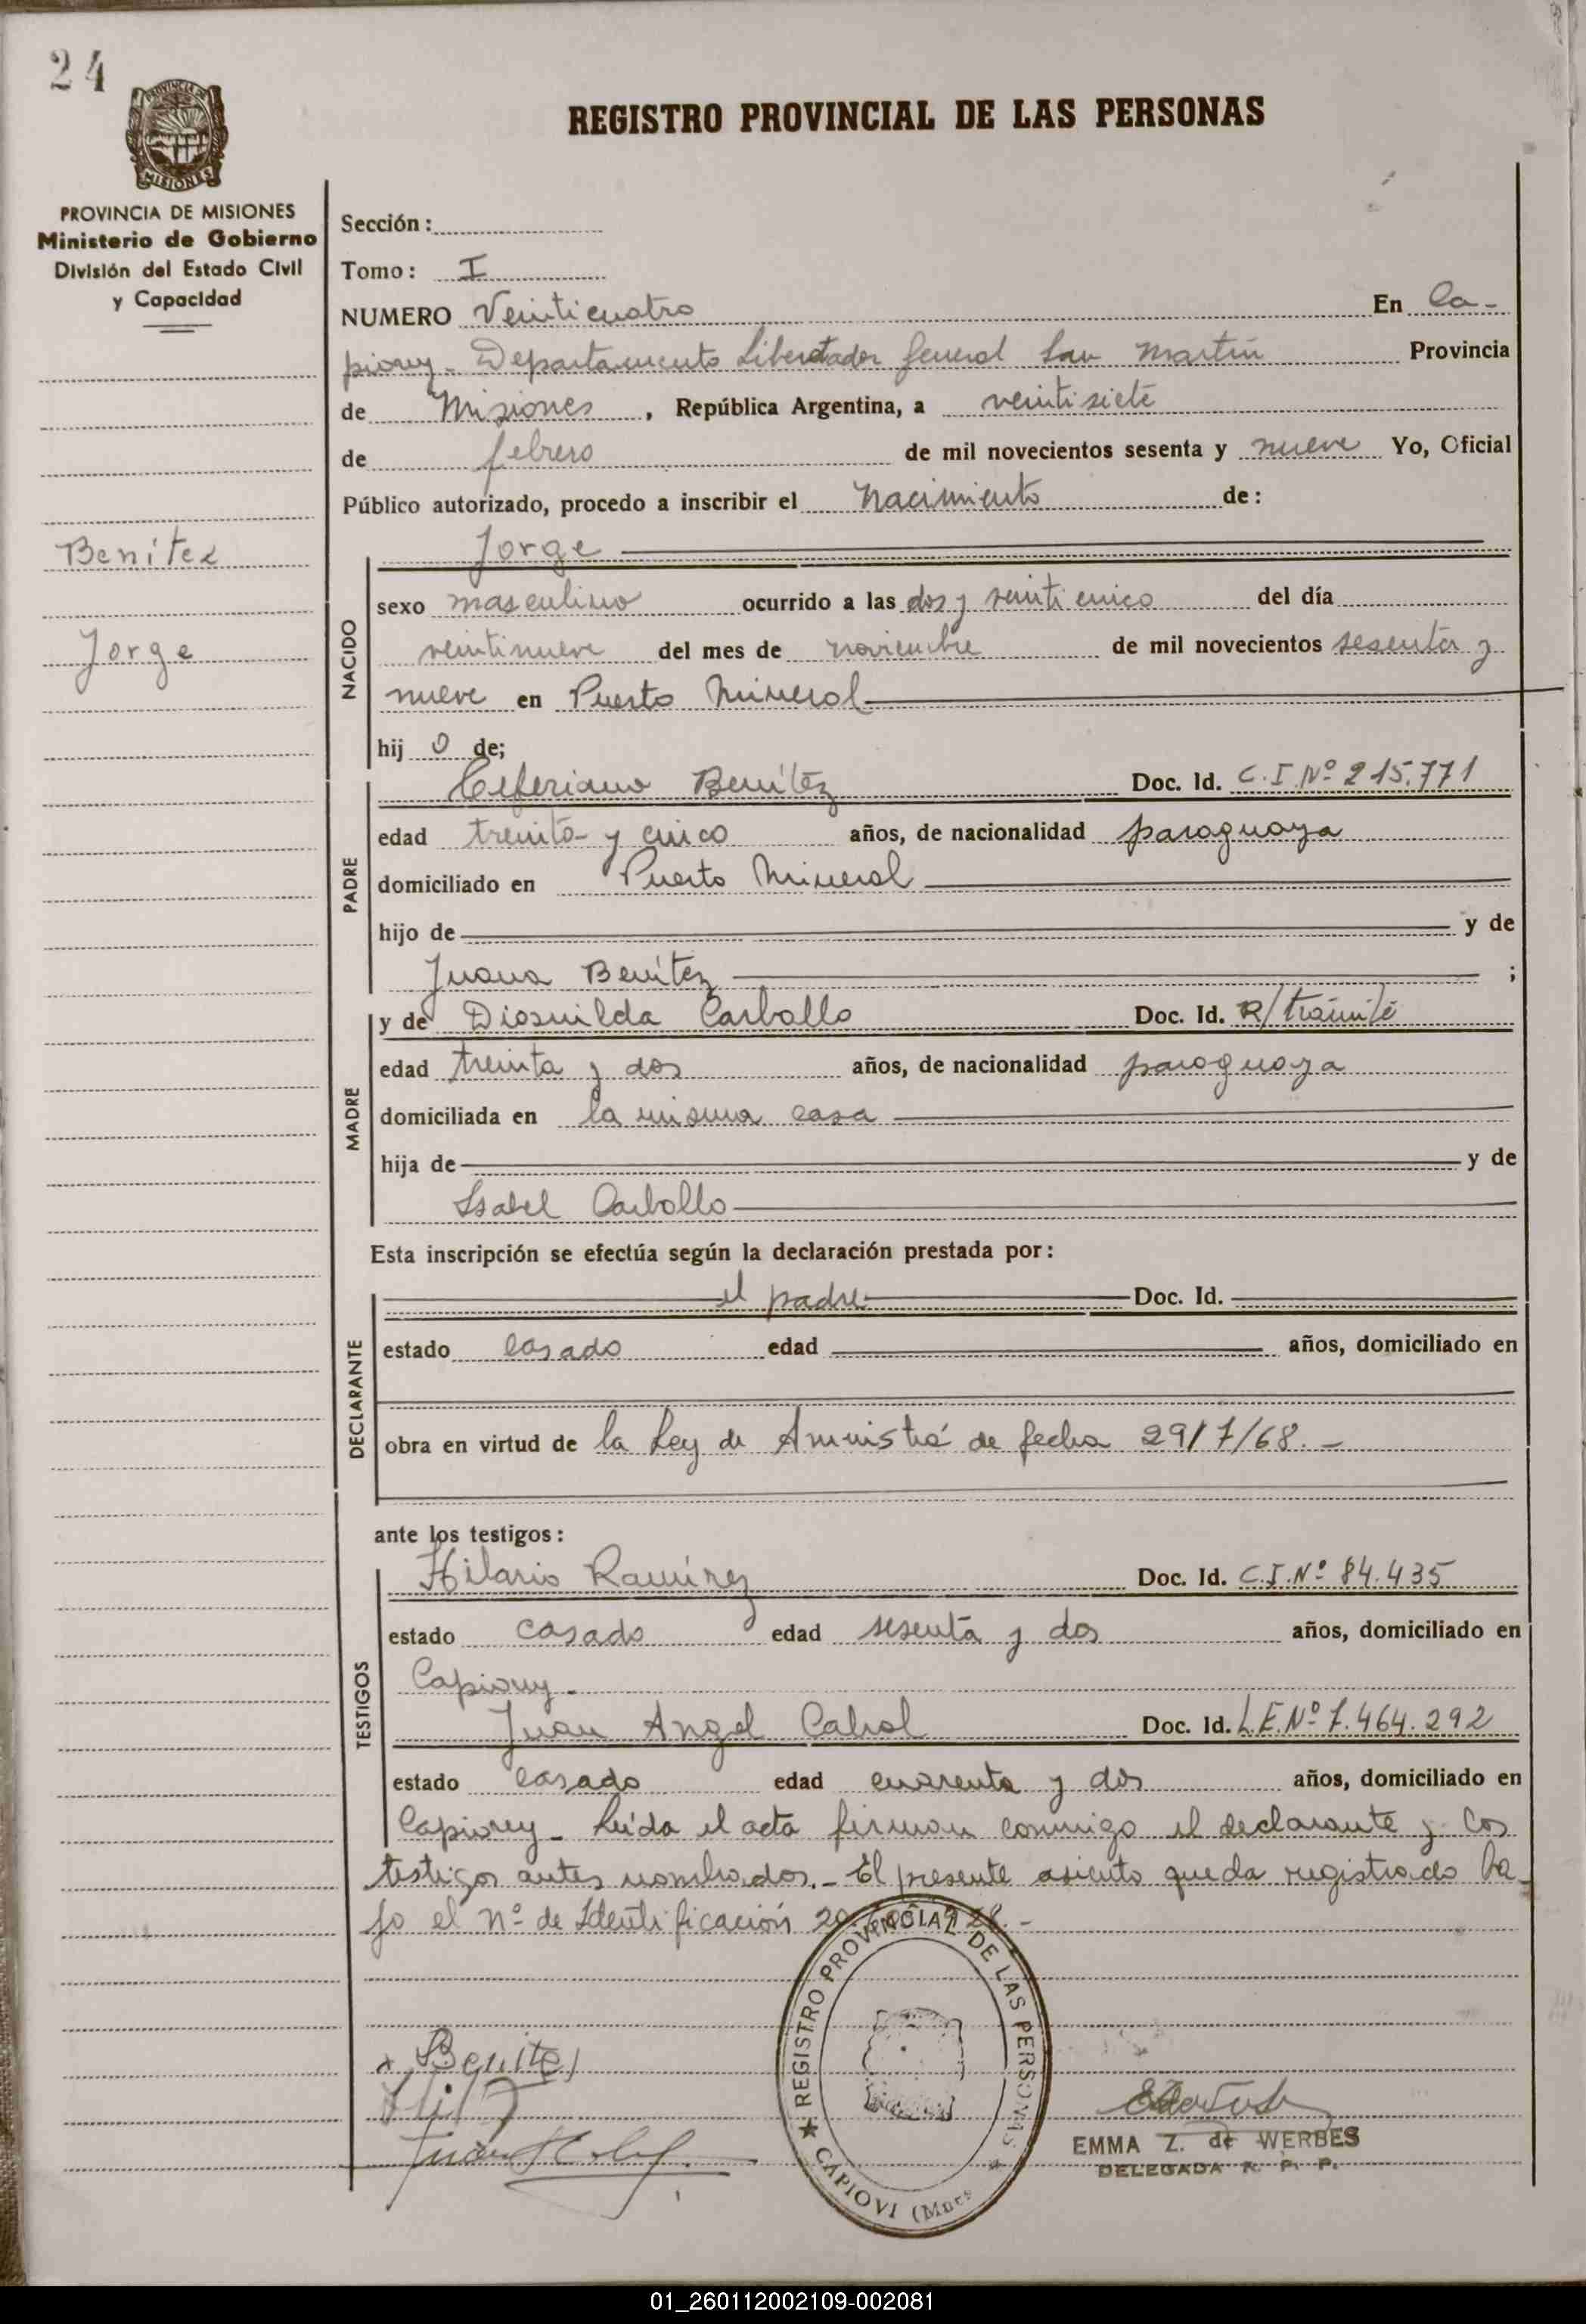 24
PROVINCIA DE
MISIONES
REGISTRO PROVINCIAL DE LAS PERSONAS
PROVINCIA DE MISIONES
Ministerio de Gobierno
División del Estado Civil
y Capacidad
Sección:
Tomo: I
NUMERO Veinticuatro En Ca-
piovy - Departamento Libertador General San Martín Provincia
de Misiones, República Argentina, a veintisiete
de febrero de mil novecientos sesenta y nueve Yo, Oficial
Público autorizado, procedo a inscribir el Nacimiento de:
Benítez
Jorge
NACIDO
Jorge
sexo masculino ocurrido a las dos y veinticinco del día
veintinueve del mes de noviembre de mil novecientos sesenta y
nueve en Puerto Mineral
hij o de;
PADRE
Ceferiano Benítez Doc. Id. C.I.Nº 215.771
edad treinta y cinco años, de nacionalidad paraguaya
domiciliado en Puerto Mineral
hijo de y de
Juana Benítez ;
MADRE
y de Diosnilda Carballo Doc. Id. R/trámite
edad treinta y dos años, de nacionalidad paraguaya
domiciliada en la misma casa
hija de y de
Isabel Carballo
Esta inscripción se efectúa según la declaración prestada por:
DECLARANTE
el padre Doc. Id.
estado casado edad años, domiciliado en
obra en virtud de la Ley de Amnistía de fecha 29/7/68.-
ante los testigos:
TESTIGOS
Hilario Ramírez Doc. Id. C.I.Nº 84.435
estado casado edad sesenta y dos años, domiciliado en
Capiovy.-
Juan Angel Cabral Doc. Id. L.E.Nº 7.464.292
estado casado edad cuarenta y dos años, domiciliado en
Capiovy - Leída el acta firman conmigo el declarante y los
testigos antes nombrados.- El presente asiento queda registrado ba-
jo el nº de Identificación
Benitez
REGISTRO PROVINCIAL DE LAS PERSONAS
CAPIOVI (Mnes
EMMA Z. de WERBES
DELEGADA R. P. P.
01_260112002109-002081